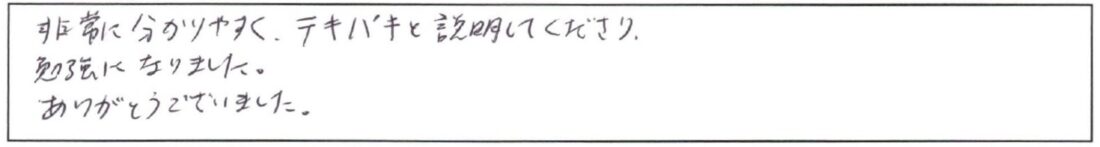 非常に分かりやすく、テキパキと説明してくださり、
勉強になりました。
ありがとうございました。